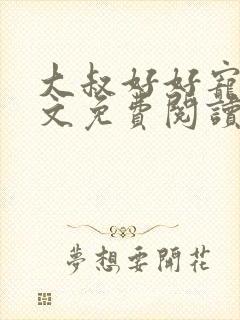 大叔好好寵
文免費閱讀
夢想要開花